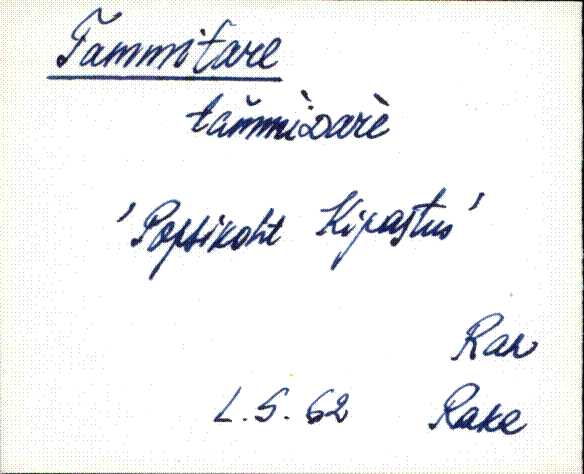 Tammitare
tammiDarè
'Popsikoht Kipastus'
Ran
L.S.62 Rake